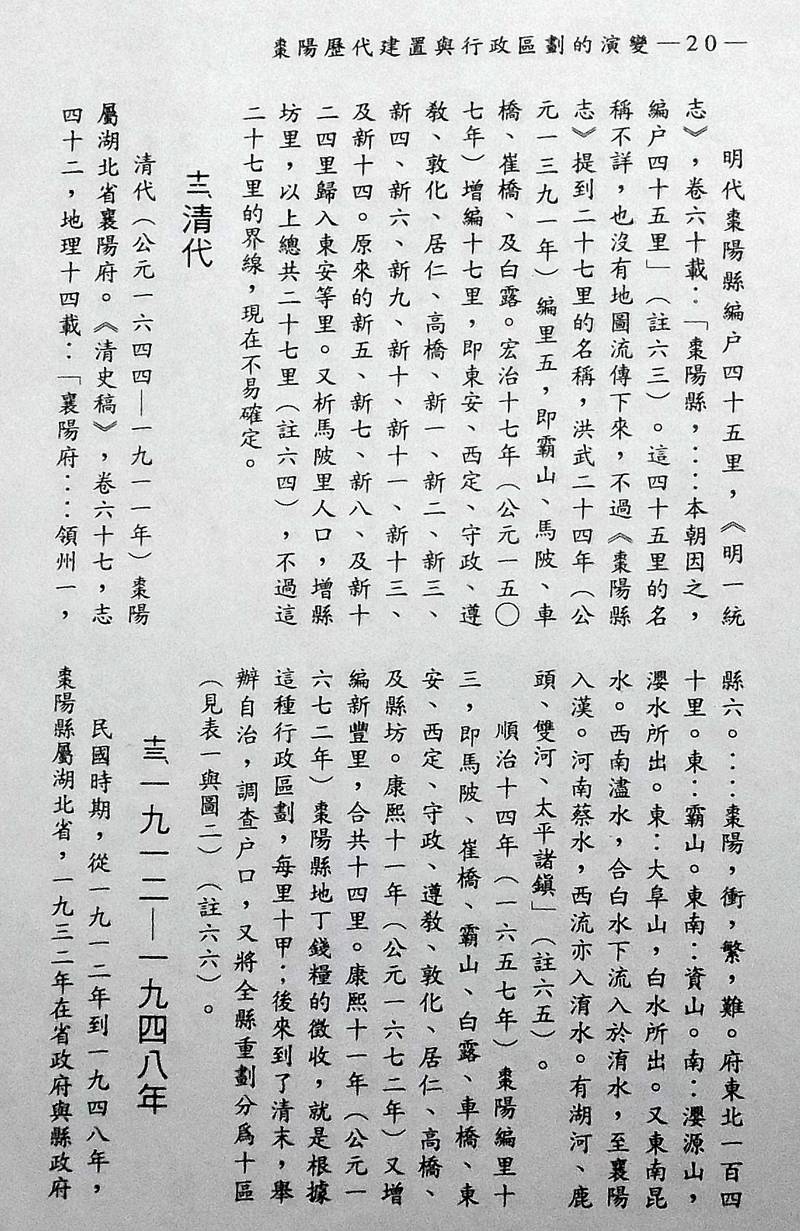 棗陽歷代建置與行政區劃的演變—20—
明代棗陽縣編户四十五里，《明一統
志》，卷六十載：「棗陽縣，：：本朝因之，
編户四十五里」（註六三）。這四十五里的名
稱不詳，也沒有地圖流傳下來，不過《棗陽縣
志》提到二十七里的名稱，洪武二十四年（公
元一三九一年）編里五，即霸山、馬陂、車
橋、崔橋、及白露。宏治十七年（公元一五〇
七年）增編十七里，即東安、西定、守政、遵
教、敦化、居仁、高橋、新一、新二、新三、
新四、新六、新九、新十、新十一、新十三、
及新十四。原來的新五、新七、新八、及新十
二四里歸入東安等里。又析馬陂里人口，增縣
坊里，以上總共二十七里（註六四），不過這
二十七里的界線，現在不易確定。
十三、清代
清代（公元一六四四—一九一一年）棗陽
屬湖北省襄陽府。《清史稿》，卷六十七，志
四十二，地理十四載：「襄陽府：：領州一，
縣六。：：棗陽，衝，繁，難。府東北一百四
十里。東：霸山。東南：資山。南：瀴源山，
瀴水所出。東：大阜山，白水所出。又東南昆
水。西南濜水，合白水下流入於淯水，至襄陽
入漢。河南蔡水，西流亦入淯水。有湖河、鹿
頭、雙河、太平諸鎭」（註六五）。
順治十四年（一六五七年）棗陽編里十
三，即馬陂、崔橋、霸山、白露、車橋、東
安、西定、守政、遵教、敦化、居仁、高橋、
及縣坊。康熙十一年（公元一六七二年）又增
編新豐里，合共十四里。康熙十一年（公元一
六七二年）棗陽縣地丁錢糧的徵收，就是根據
這種行政區劃，每里十甲；後來到了清末，舉
辦自治，調查户口，又將全縣重劃分爲十區
（見表一與圖二）（註六六）。
十三、一九一二—一九四八年
民國時期，從一九一二年到一九四八年，
棗陽縣屬湖北省，一九三二年在省政府與縣政府